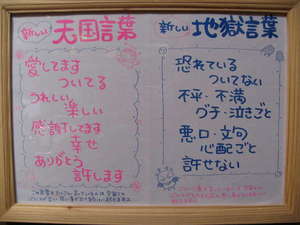 新しい 天国言葉
愛してます
ついてる
うれしい
楽しい
感謝してます
幸せ
ありがとう
許します
新しい 地獄言葉
恐れている
ついてない
不平・不満
グチ・泣きごと
悪口・文句
心配ごと
許せない